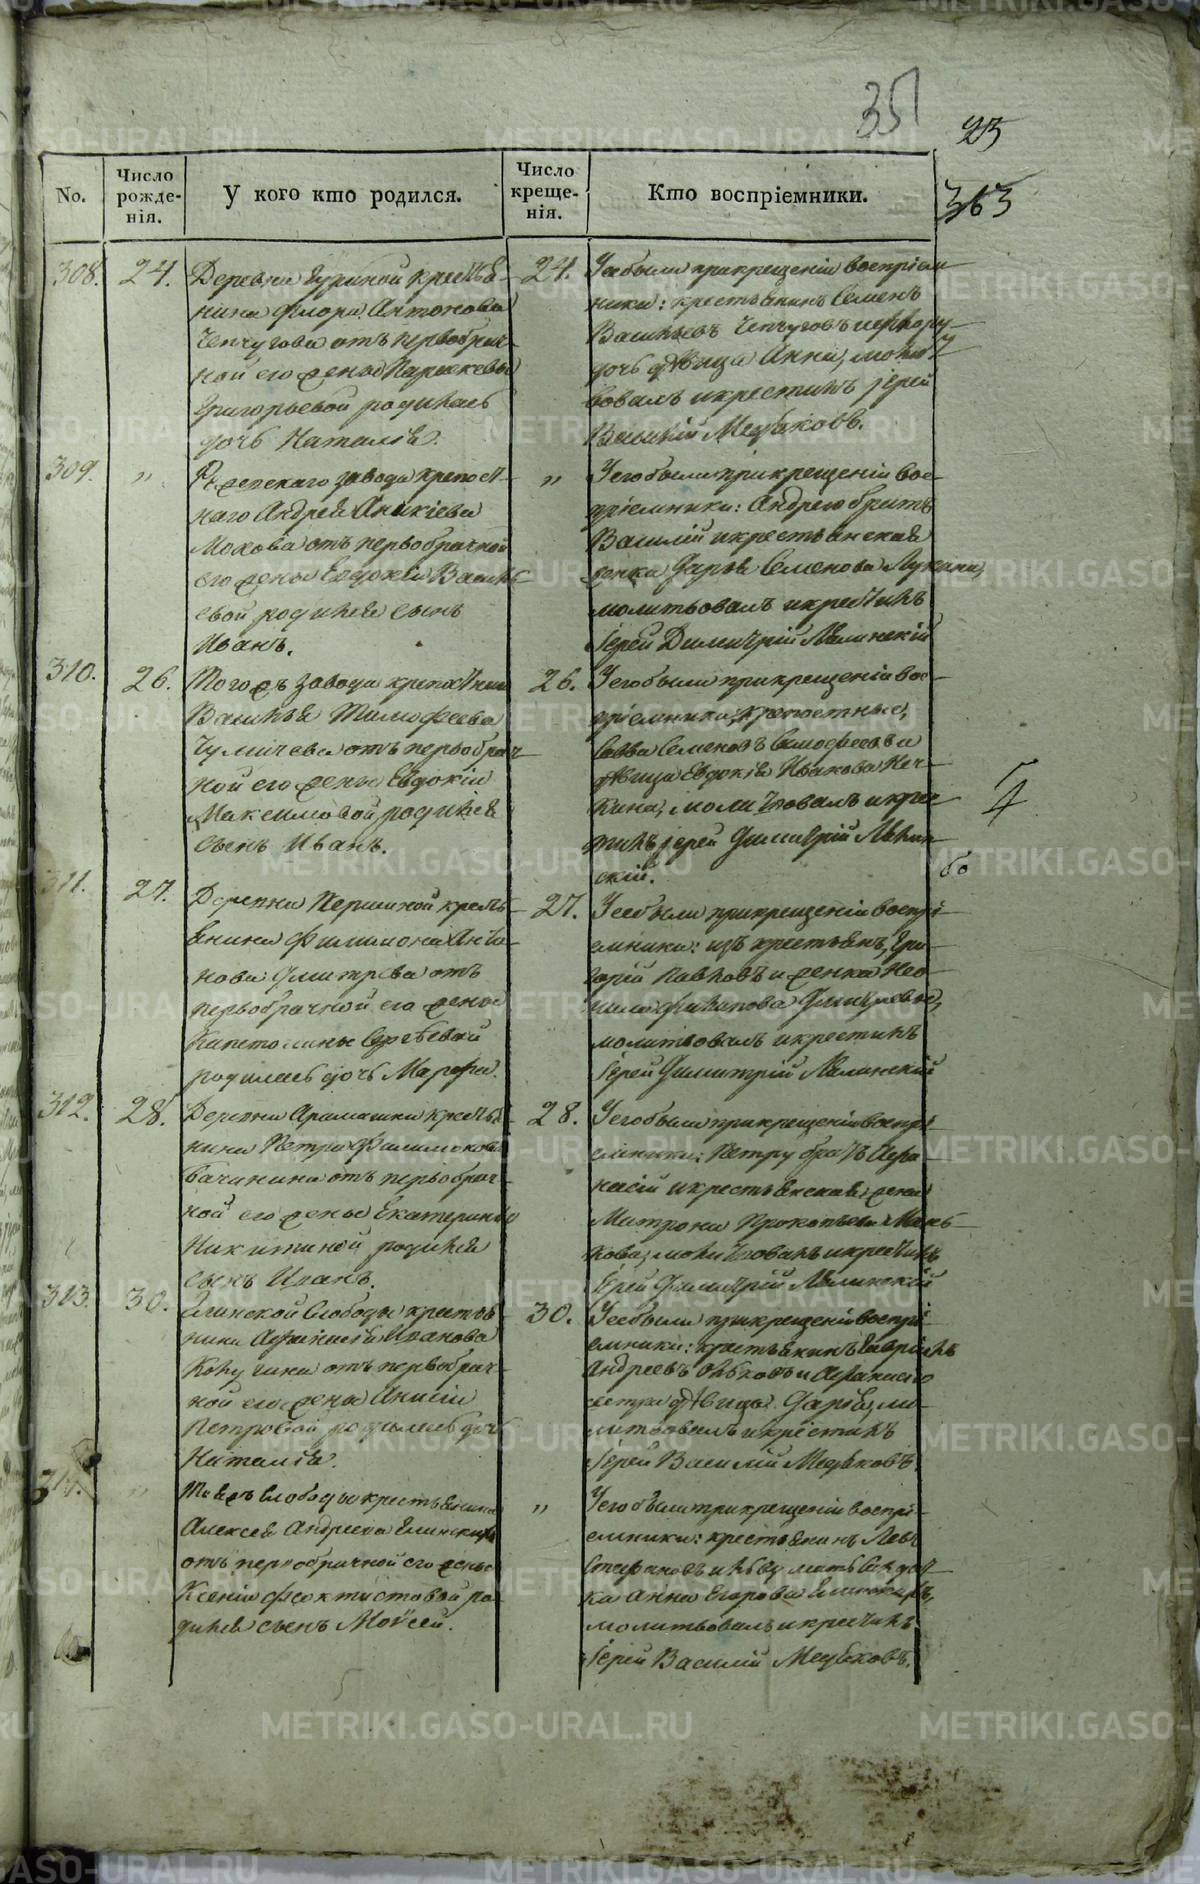 35
23
363
No.
Число рожденія.
У кого кто родился.
Число крещенія.
Кто воспріемники.
308.
24.
Деревни крестья-
нина Флора Антонова
Чепчугова отъ первобрач-
ной его жены Параскевы
Григорьевой родилась
дочь Наталія.
24.
У ее были при крещеніи воспріем-
ники: крестьянинъ Семенъ
Васильевъ Чепчуговъ и
дочь дѣвица Анна, молит-
вовалъ и крестилъ іерей
Василій Медьковъ.
309.
"
Режевскаго завода крепост-
наго Андрея Аникіева
Мохова отъ первобрачной
его жены Евдокіи Василь-
евой родился сынъ
Иванъ.
"
У его были при крещеніи вос-
пріемники: Андрею братъ
Василій и крестьянская
женка Дарья Семенова
молитвовалъ и крестилъ
іерей Димитрій Малинскій
310.
26.
Того жъ завода крепостнаго
Василья Тимофеева
отъ первобрач-
ной его жены Евдокіи
Максимовой родился
сынъ Иванъ.
26.
У его были при крещеніи вос-
пріемники; крепостные,
Савва Семеновъ и
дѣвица Евдокія Иванова
молитвовалъ и крес-
тилъ іерей Димитрій Малин-
скій.
4
311.
27.
Деревни Першиной кресть-
янина Филимона Анто-
нова отъ
первобрачной его жены
Капетолины Сергѣевой
родилась дочь Марфа.
27.
У ее были при крещеніи воспрі-
емники: изъ крестьянъ, Гри-
горій и женка Нео-
нила Филипова
молитвовалъ и крестилъ
іерей Димитрій Малинскій
312.
28.
Деревни Арамашки кресть-
нина Петра Филимонова
Бачинина отъ первобрач-
ной его жены Екатерины
Никитиной родился
сынъ Иванъ.
28.
У его были при крещеніи воспрі-
емники: Петру братъ Афа-
насій и крестьянская жена
Матрона Прокопьева Мань-
кова, молитвовалъ и крестилъ
іерей Димитрій Малинскій
313.
30.
Глинской Слободы крестья-
нина Афанасія Иванова
отъ первобрач-
ной его жены Анисіи
Петровой родилась дочь
Наталія.
30.
У ее были при крещеніи воспрі-
емники: крестьянинъ Гавріилъ
Андреевъ Ольковъ и Афанасію
сестра дѣвица Дарія, мо-
литвовалъ и крестилъ
іерей Василій Медьковъ.
314.
"
Той жъ слободы крестьянина
Алексея Андреева Глинскихъ
отъ первобрачной его жены
Ксеніи Феоктистовой ро-
дился сынъ Моѵсей.
"
У его были при крещеніи воспрі-
емники: крестьянинъ Левъ
Стефановъ и мать
Анна Егорова Глинскихъ,
молитвовалъ и крестилъ
іерей Василій Медьковъ.
METRIKI.GASO-URAL.RU